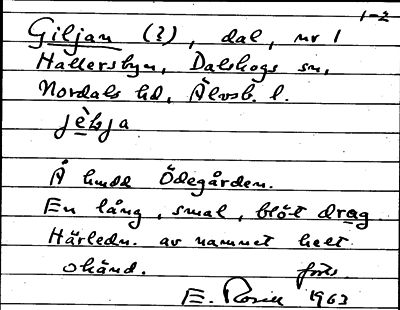 1-2
Giljan (?), dal, nr 1
Hallersbyn, Dalskogs sn,
Nordals hd, Älvsb. l.
Å hmdd Ödegården.
En lång, smal, blöt drag.
Härledn. av namnet helt
okänd. forts.
E. Rosell 1963